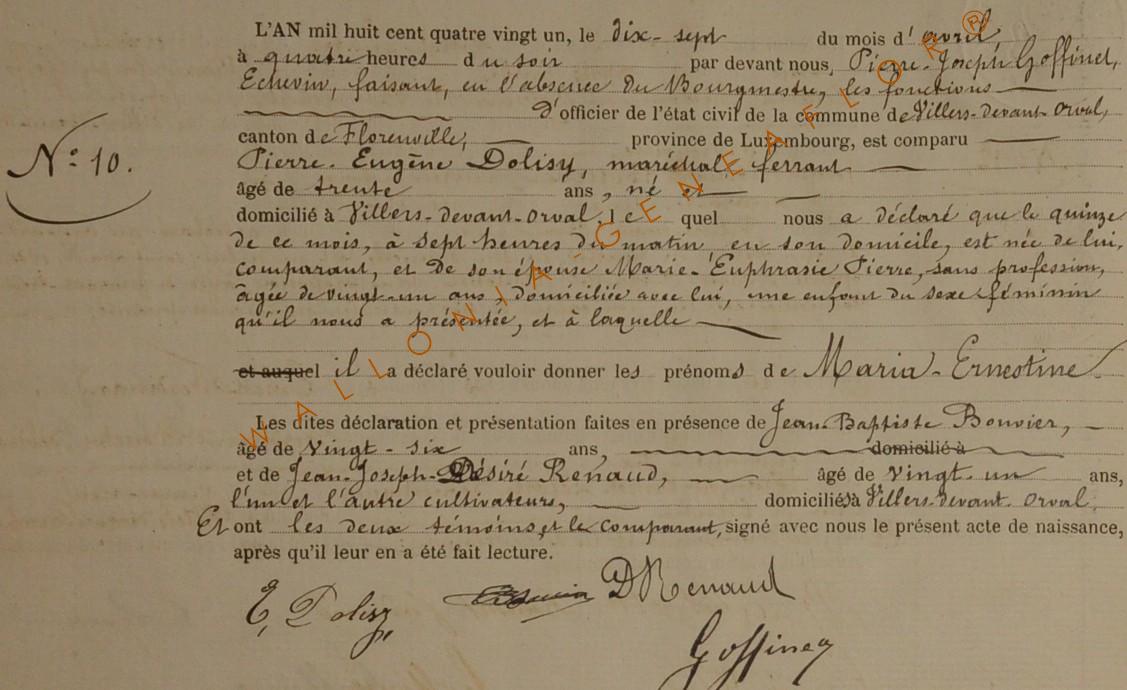 L'AN mil huit cent quatre vingt un, le dix-sept du mois d'avril,
à quatre heures du soir par devant nous, Pierre-Joseph Goffinet,
Echevin, faisant, en l'absence du Bourgmestre, les fonctions
d'officier de l'état civil de la commune de Villers-devant-Orval,
canton de Florenville, province de Luxembourg, est comparu
N° 10.
Pierre-Eugène Dolisy, maréchal ferrant
âgé de trente ans, né et
domicilié à Villers-devant-Orval, lequel nous a déclaré que le quinze
de ce mois, à sept heures du matin en son domicile, est née de lui,
comparant, et de son épouse Marie-Euphrasie Pierre, sans profession,
âgée de vingt-un ans, domiciliée avec lui, une enfant du sexe féminin
qu'il nous a présentée, et à laquelle
et auquel il a déclaré vouloir donner les prénoms de Maria-Ernestine
Les dites déclaration et présentation faites en présence de Jean-Baptiste Bouvier,
âgé de vingt-six ans, domicilié à
et de Jean-Joseph-Désiré Renaud, âgé de vingt-un ans,
l'un et l'autre cultivateurs, domiciliés à Villers-devant-Orval.
Et ont les deux témoins, et le comparant, signé avec nous le présent acte de naissance,
après qu'il leur en a été fait lecture.
E, Dolisy DRenaud
Goffinet
WALLONIA-GENEAFLOR®